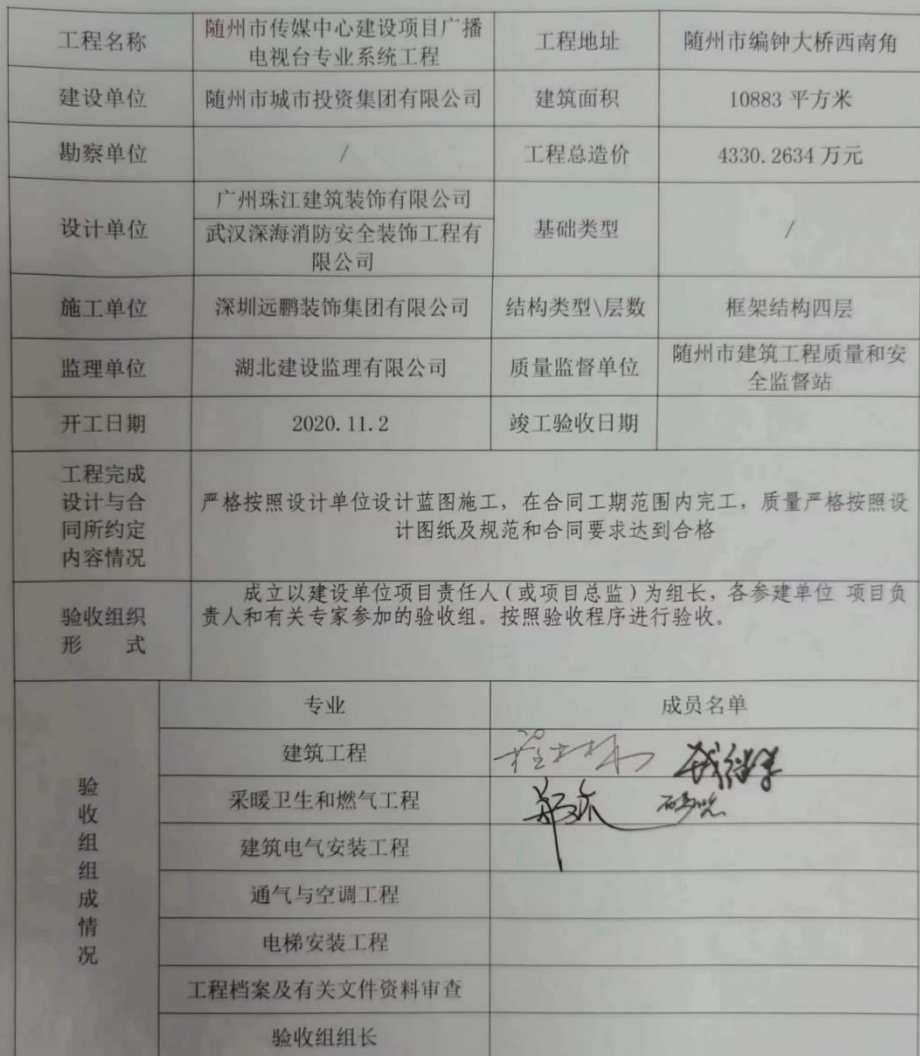 工程名称 随州市传媒中心建设项目广播 工程地址 随州市编钟大桥西南角
电视台专业系统工程
建设单位 随州市城市投资集团有限公司 建筑面积 10883 平方米
勘察单位 / 工程总造价 4330.2634 万元
广州珠江建筑装饰有限公司
设计单位 武汉深海消防安全装饰工程有 基础类型 /
限公司
施工单位 深圳远鹏装饰集团有限公司 结构类型\层数 框架结构四层
监理单位 湖北建设监理有限公司 质量监督单位 随州市建筑工程质量和安
全监督站
开工日期 2020.11.2 竣工验收日期
工程完成
设计与合
同所约定
内容情况
严格按照设计单位设计蓝图施工，在合同工期范围内完工，质量严格按照设
计图纸及规范和合同要求达到合格
验收组织
形 式
成立以建设单位项目责任人(或项目总监)为组长，各参建单位 项目负
责人和有关专家参加的验收组。按照验收程序进行验收。
验收组组成情况
专业 成员名单
建筑工程
采暖卫生和燃气工程
建筑电气安装工程
通气与空调工程
电梯安装工程
工程档案及有关文件资料审查
验收组组长